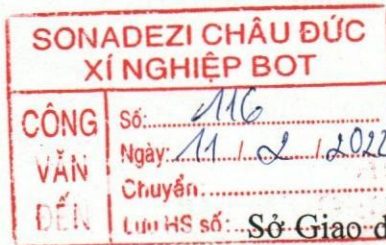 SONADEZI CHÂU ĐỨC
XÍ NGHIỆP BOT
CÔNG VĂN ĐẾN
Số:...116
Ngày:.11../..2../.2022
Chuyển:..................
Lưu HS số:...
Sở Giao d